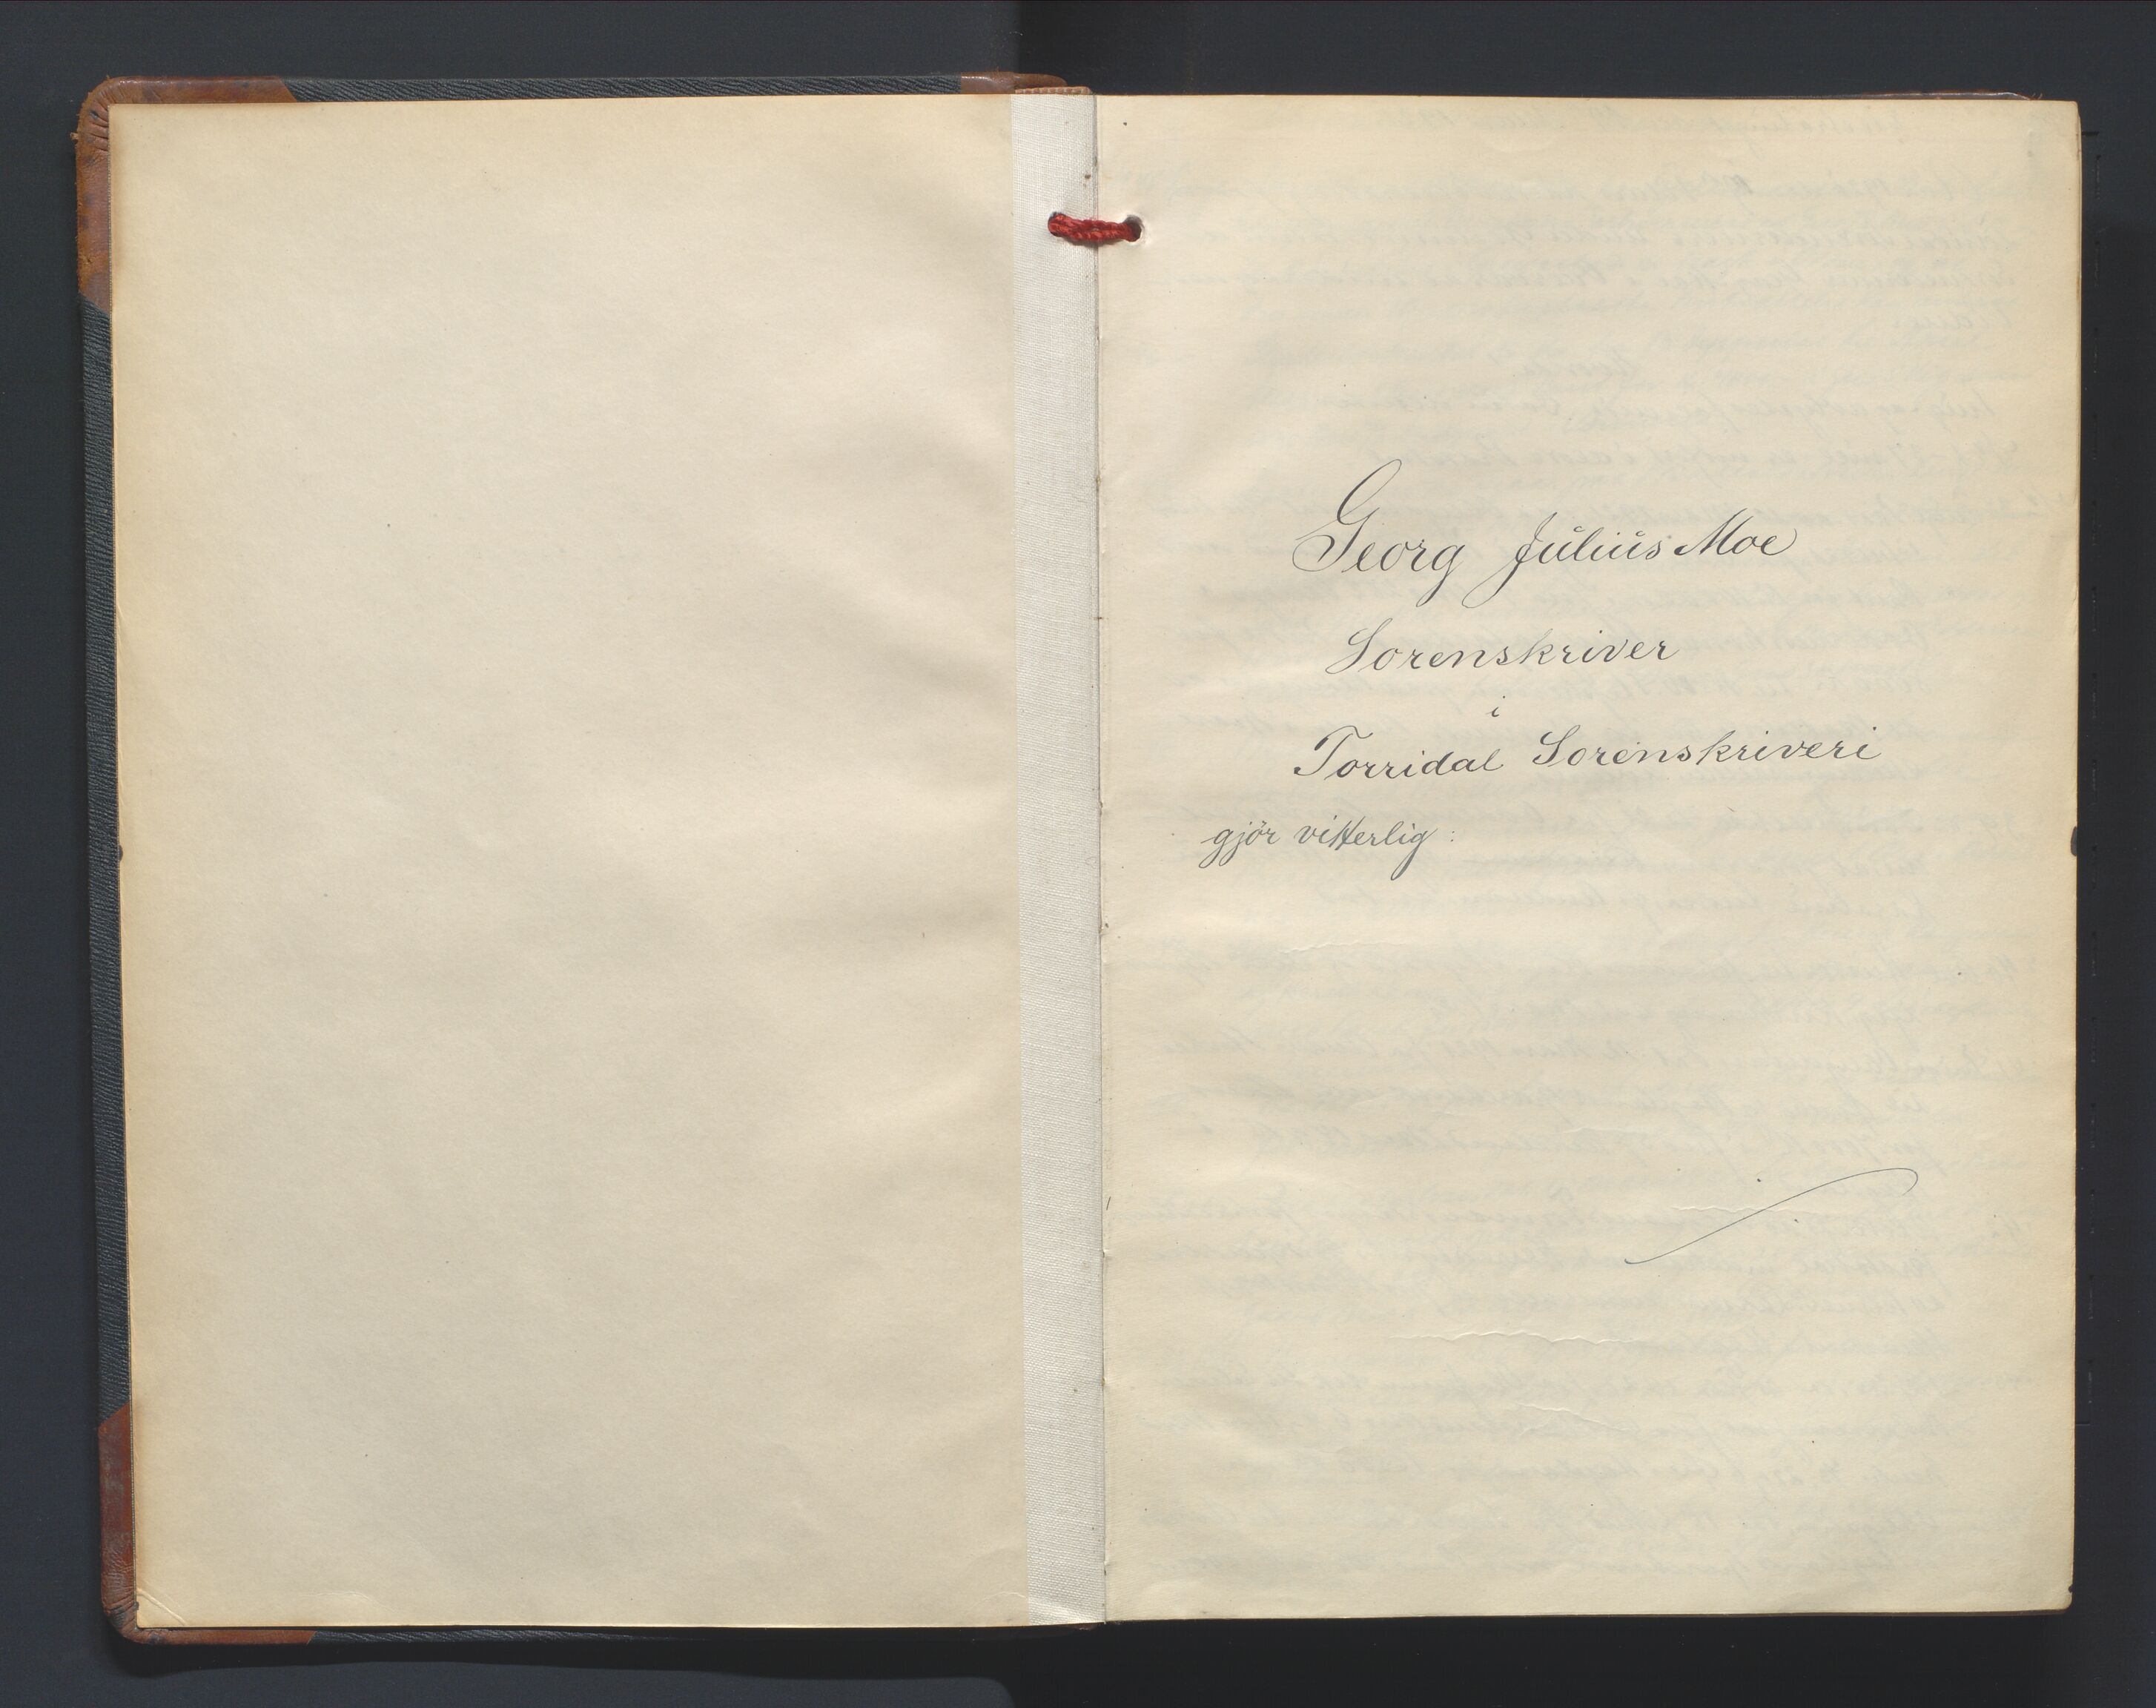 Georg Julius Moe
Sorenskriver
i
Torridal Sorenskriveri
gjör vitterlig: